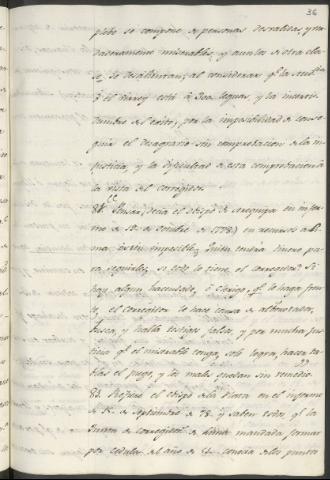 36
pleto se compone de personas desvalidas, y ver
daderamente miserables, y aun los de otra cla
se, se desalientan; al considerar qe la aud.a
ó el virrey está á 300 leguas, y la incerti
dumbre del exito, por la imposibilidad de conse
guir el desagravio sin comprobacion de la in
justicia, y la dificultad de esta comprobacion á
la vista del corregidor.
Pensar, decia el obispo de Arequipa en infor
me de de Octubre de 1778, en recursos á Li
ma es un imposible; Quien tendra dinero pa
ra seguirle, si este lo tiene el corregidor? Si
hay algun hacendado, ó clerigo qe lo haga fren
te, el corregidor le hace causa de alborotador;
busca, y halla testigos falsos, y por mucha jus
ticia qe el miserable tenga, solo logra, hacer ta
blas el juego, y los males quedan sin remedio.
Refiere el obispo de la en el informe
de 15. de Septiembre de 78. y saben todos qe la
Junta de corregidor.s de Lima mandada formar
por cedula del año de 51. conocia de los puntos